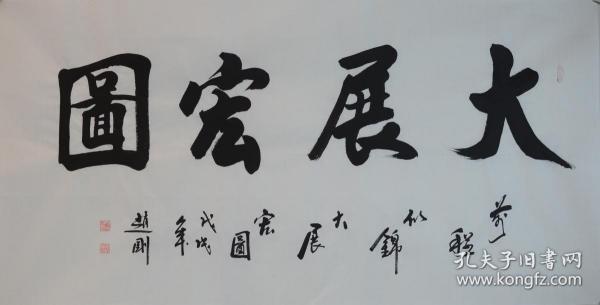 大展宏圖
前程似錦大展宏圖戊戌年趙剛
孔夫子旧书网
www.kongfz.com